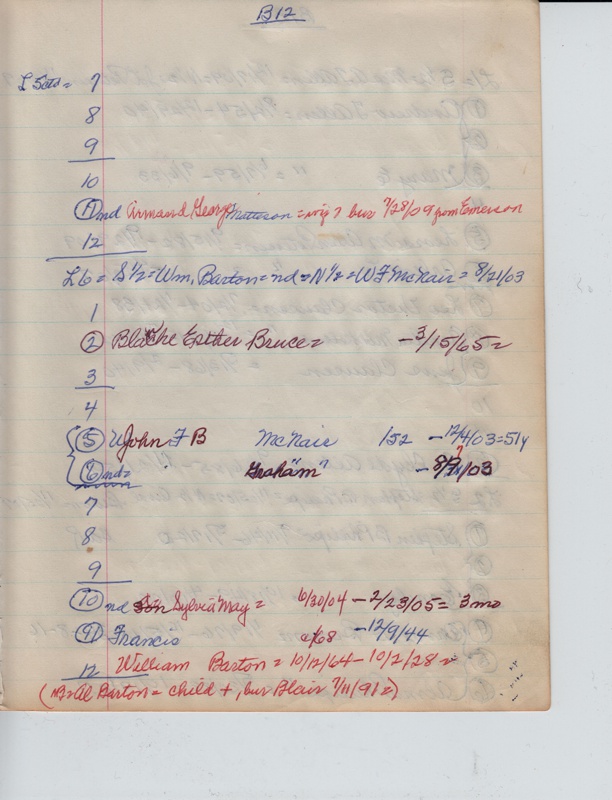 B12
L 5 = 7
8
9
10
11 nd Armand George Matteson = ? bur 7/28/09 from Emerson
12
L6 = S 1/2 = Wm. Barton = nd = N 1/2 = W F McNair = 8/21/03
1
2 Blanche Esther Bruce = - 3/15/65 =
3
4
5 John F B McNair 152 - 12/4/03 = 51y
6 nd = Graham ? - /03
7
8
9
10 nd Son Sylvia May = 6/30/04 - 2/23/05 = 3 mo
Francis c/68 - 12/9/44
William Barton = 10/12/64 - 10/2/28 =
12
(B = Al Barton = child +, bur Blair 7/11/91 =)